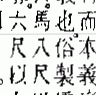 而本義
也俗製
馬八尺
六尺以